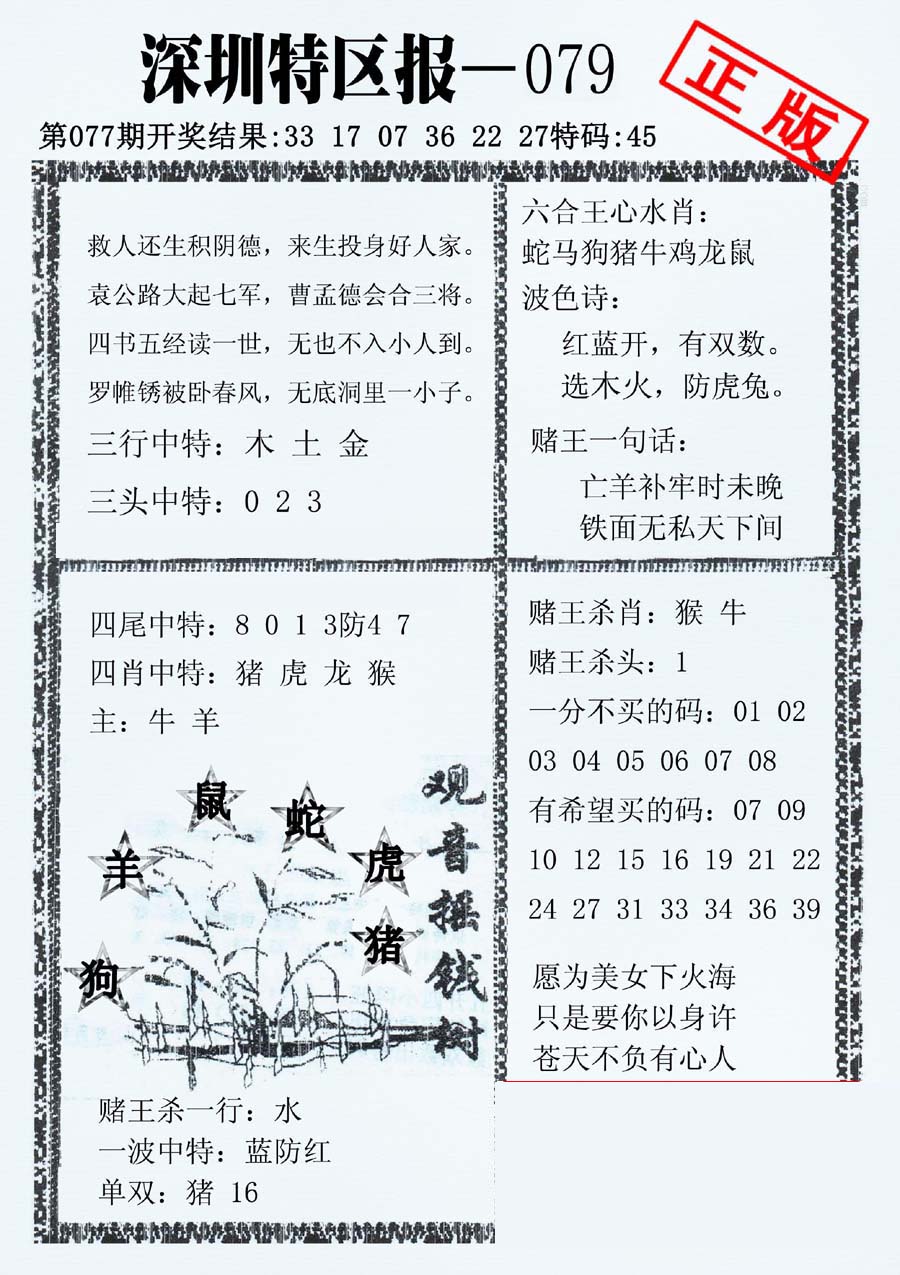 深圳特区报—079
正版
第077期开奖结果:33 17 07 36 22 27特码:45
救人还生积阴德，来生投身好人家。
袁公路大起七军，曹孟德会合三将。
四书五经读一世，无也不入小人到。
罗帷锈被卧春风，无底洞里一小子。
三行中特：木 土 金
三头中特：0 2 3
六合王心水肖：
蛇马狗猪牛鸡龙鼠
波色诗：
红蓝开，有双数。
选木火，防虎兔。
赌王一句话：
亡羊补牢时未晚
铁面无私天下间
四尾中特：8 0 1 3防4 7
四肖中特：猪 虎 龙 猴
主：牛 羊
鼠
蛇
羊
虎
猪
狗
观音摇钱树
赌王杀一行：水
一波中特：蓝防红
单双：猪 16
赌王杀肖：猴 牛
赌王杀头：1
一分不买的码：01 02
03 04 05 06 07 08
有希望买的码：07 09
10 12 15 16 19 21 22
24 27 31 33 34 36 39
愿为美女下火海
只是要你以身许
苍天不负有心人